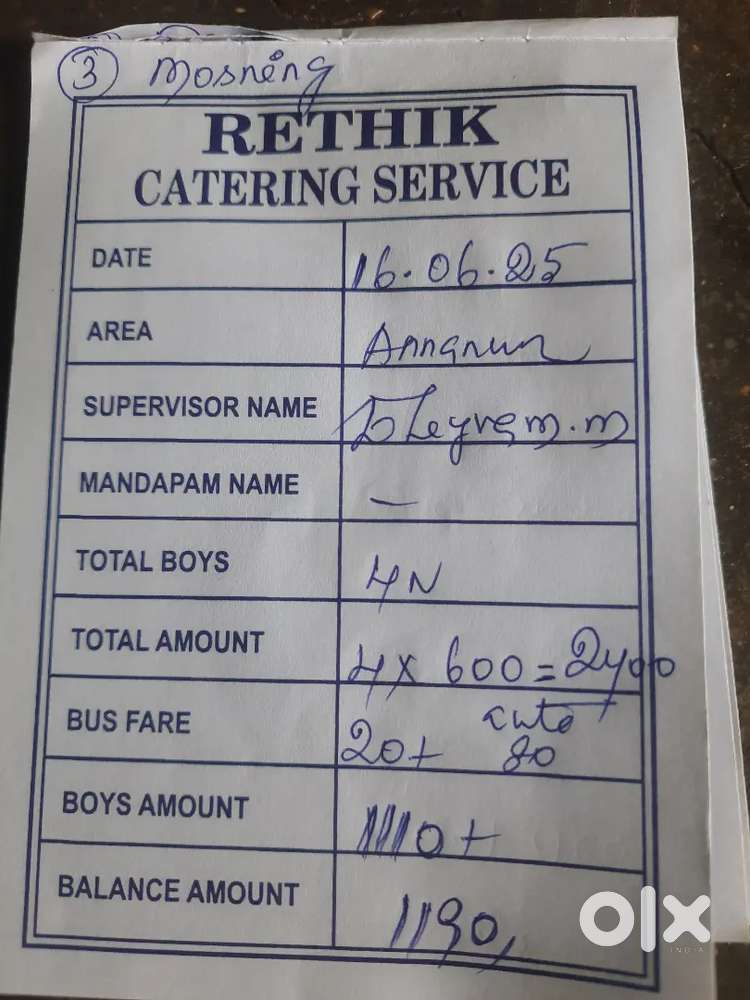 3 Morning
RETHIK
CATERING SERVICE
DATE 16.06.25
AREA Annanur
SUPERVISOR NAME
MANDAPAM NAME —
TOTAL BOYS 4N
TOTAL AMOUNT 4 x 600 = 2400
BUS FARE 20+ auto 80
BOYS AMOUNT 1110+
BALANCE AMOUNT 1190,
olx
INDIA